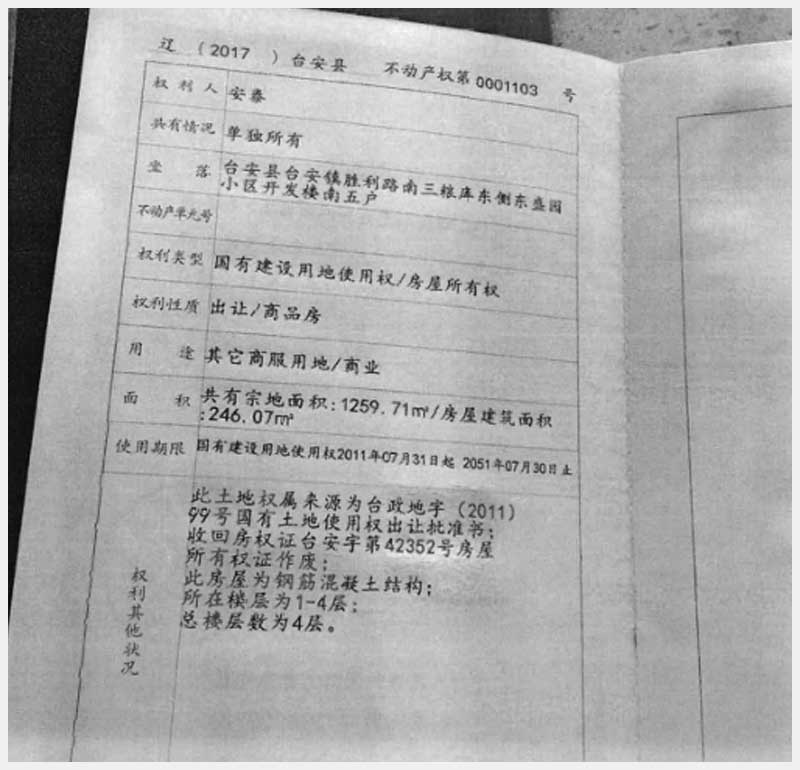 辽 （2017 ）台安县 不动产权第0001103 号
权利人 安泰
共有情况 单独所有
坐落 台安县台安镇胜利路南三粮库东侧东盛园
小区开发楼南五户
不动产单元号
权利类型 国有建设用地使用权/房屋所有权
权利性质 出让/商品房
用途 其它商服用地/商业
面积 共有宗地面积:1259.71㎡/房屋建筑面积
:246.07㎡
使用期限 国有建设用地使用权2011年07月31日起 2051年07月30日止
权利其他状况
此土地权属来源为台政地字（2011）
99号国有土地使用权出让批准书；
收回房权证台安字第42352号房屋
所有权证作废；
此房屋为钢筋混凝土结构；
所在楼层为1-4层；
总楼层数为4层。